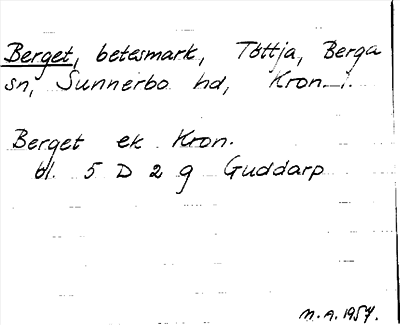 Berget, betesmark, Töttja, Berga
sn, Sunnerbo hd, Kron. l.
Berget ek Kron.
bl. 5 D 2 g Guddarp
M.A. 1957.